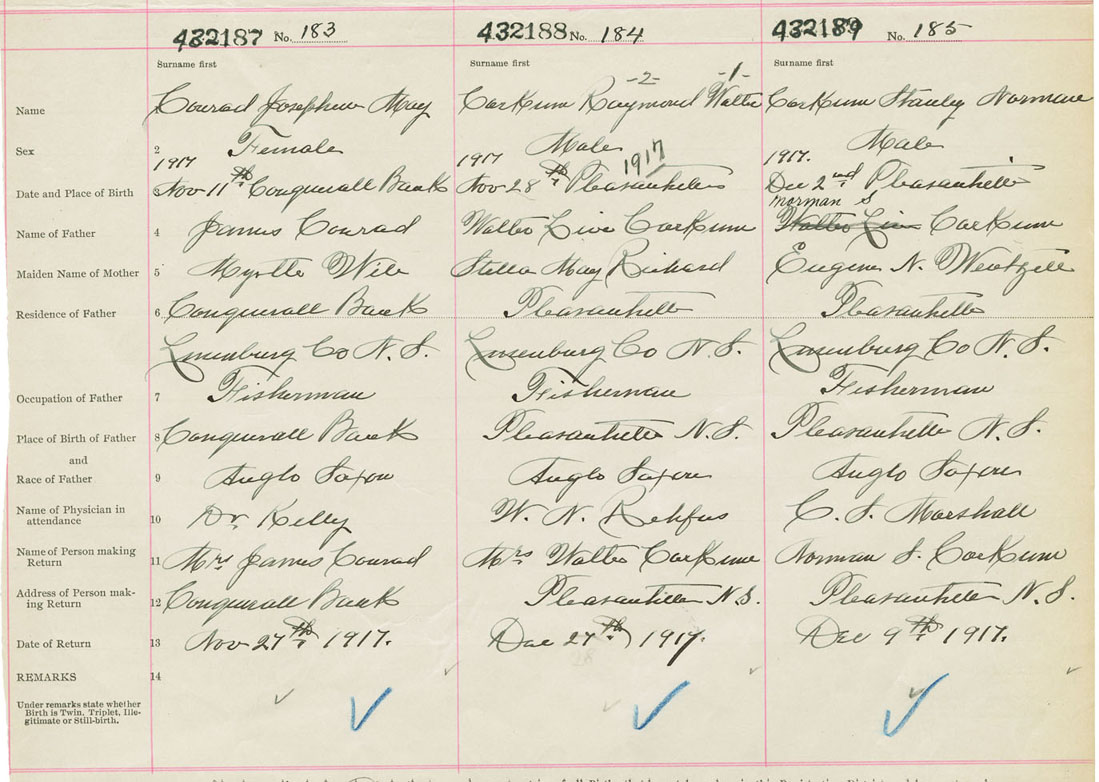 432187 No. 183 432188 No. 184 432189 No. 185
Surname first Surname first Surname first
-2- -1-
Name 1 Conrad Josephine May Corkum Raymond Walter Corkum Stanley Norman
Sex 2 Female Male Male
1917 1917 1917 1917.
Date and Place of Birth 3 Nov 11th Conquerall Bank Nov 28th Pleasantville Dec 2nd Pleasantville
Norman S
Name of Father 4 James Conrad Walter Corkum Walter Corkum
Maiden Name of Mother 5 Myrtle Wile Stella May Richard Eugene N. Wentzell
Residence of Father 6 Conquerall Bank Pleasantville Pleasantville
Lunenburg Co N. S. Lunenburg Co N. S. Lunenburg Co N. S.
Occupation of Father 7 Fisherman Fisherman Fisherman
Place of Birth of Father 8 Conquerall Bank Pleasantville N. S. Pleasantville N. S.
and
Race of Father 9 Anglo Saxon Anglo Saxon Anglo Saxon
Name of Physician in
attendance 10 Dr. Kelly W. N. Rehfus C. S. Marshall
Name of Person making
Return 11 Mrs James Conrad Mrs Walter Corkum Norman S. Corkum
Address of Person mak-
ing Return 12 Conquerall Bank Pleasantville N.S. Pleasantville N. S.
Date of Return 13 Nov 27th, 1917. Dec 27th, 1917. Dec 9th, 1917.
REMARKS 14
Under remarks state whether
Birth is Twin, Triplet, Ille-
gitimate or Still-birth.